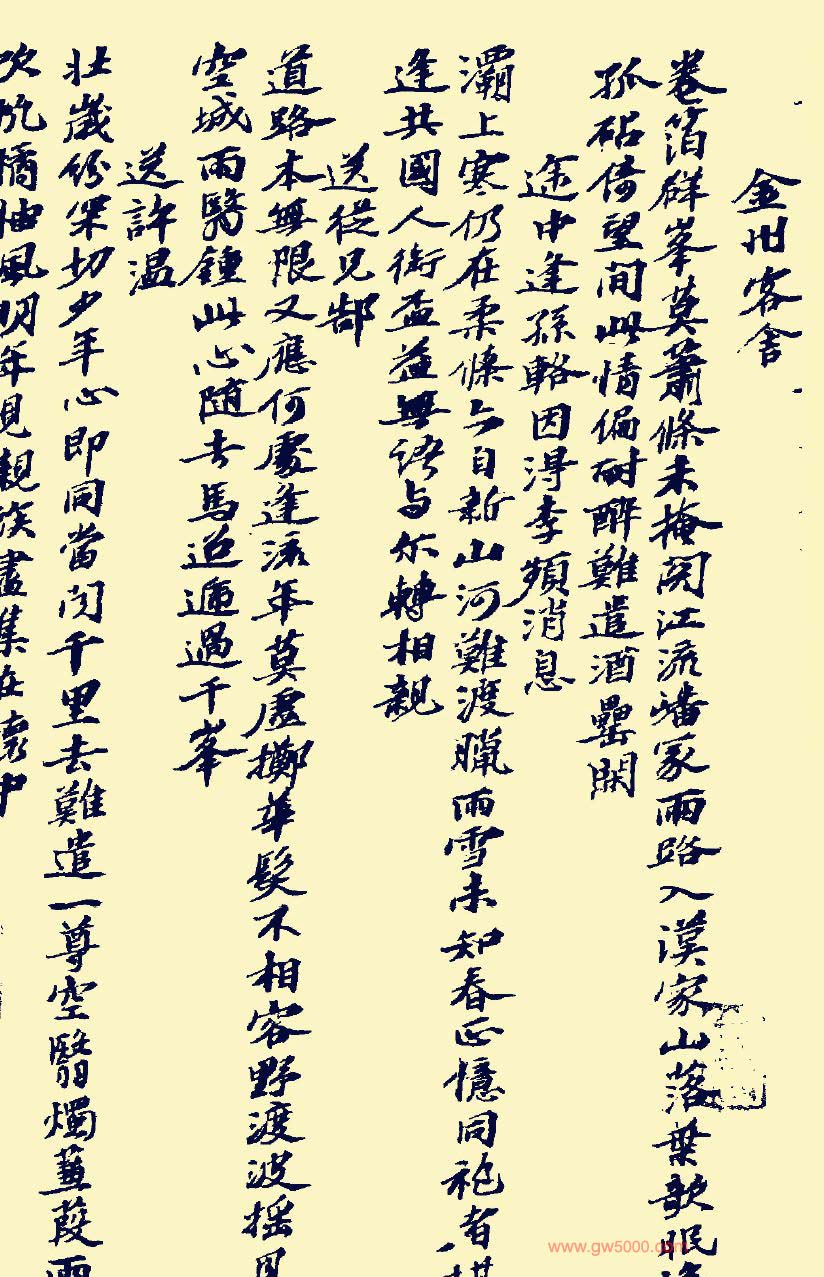 金州客舍
卷箔群峯莫蕭條未掩関江流嶓冢雨路入漢家山落葉欹眠
孤砧倚望間此情偏耐醉難遣酒罍閑
途中逢孫輅因淂李頻消息
灞上寒仍在柔條亦自新山河難渡臘雨雪未知春正憶同袍者堪
逢共國人銜盃益無語与尓轉相親
送從兄郜
道路本無限又應何處逢流年莫虛擲華髮不相容野渡波摇月
空城雨翳鍾此心随去馬迢遞過千峯
送許温
壯歲份罙切少年心即同當聞千里去難遣一尊空翳燭蒹葭雨
吹帆橘柚風明年見親族盡集在懷中
www.gw5000.com